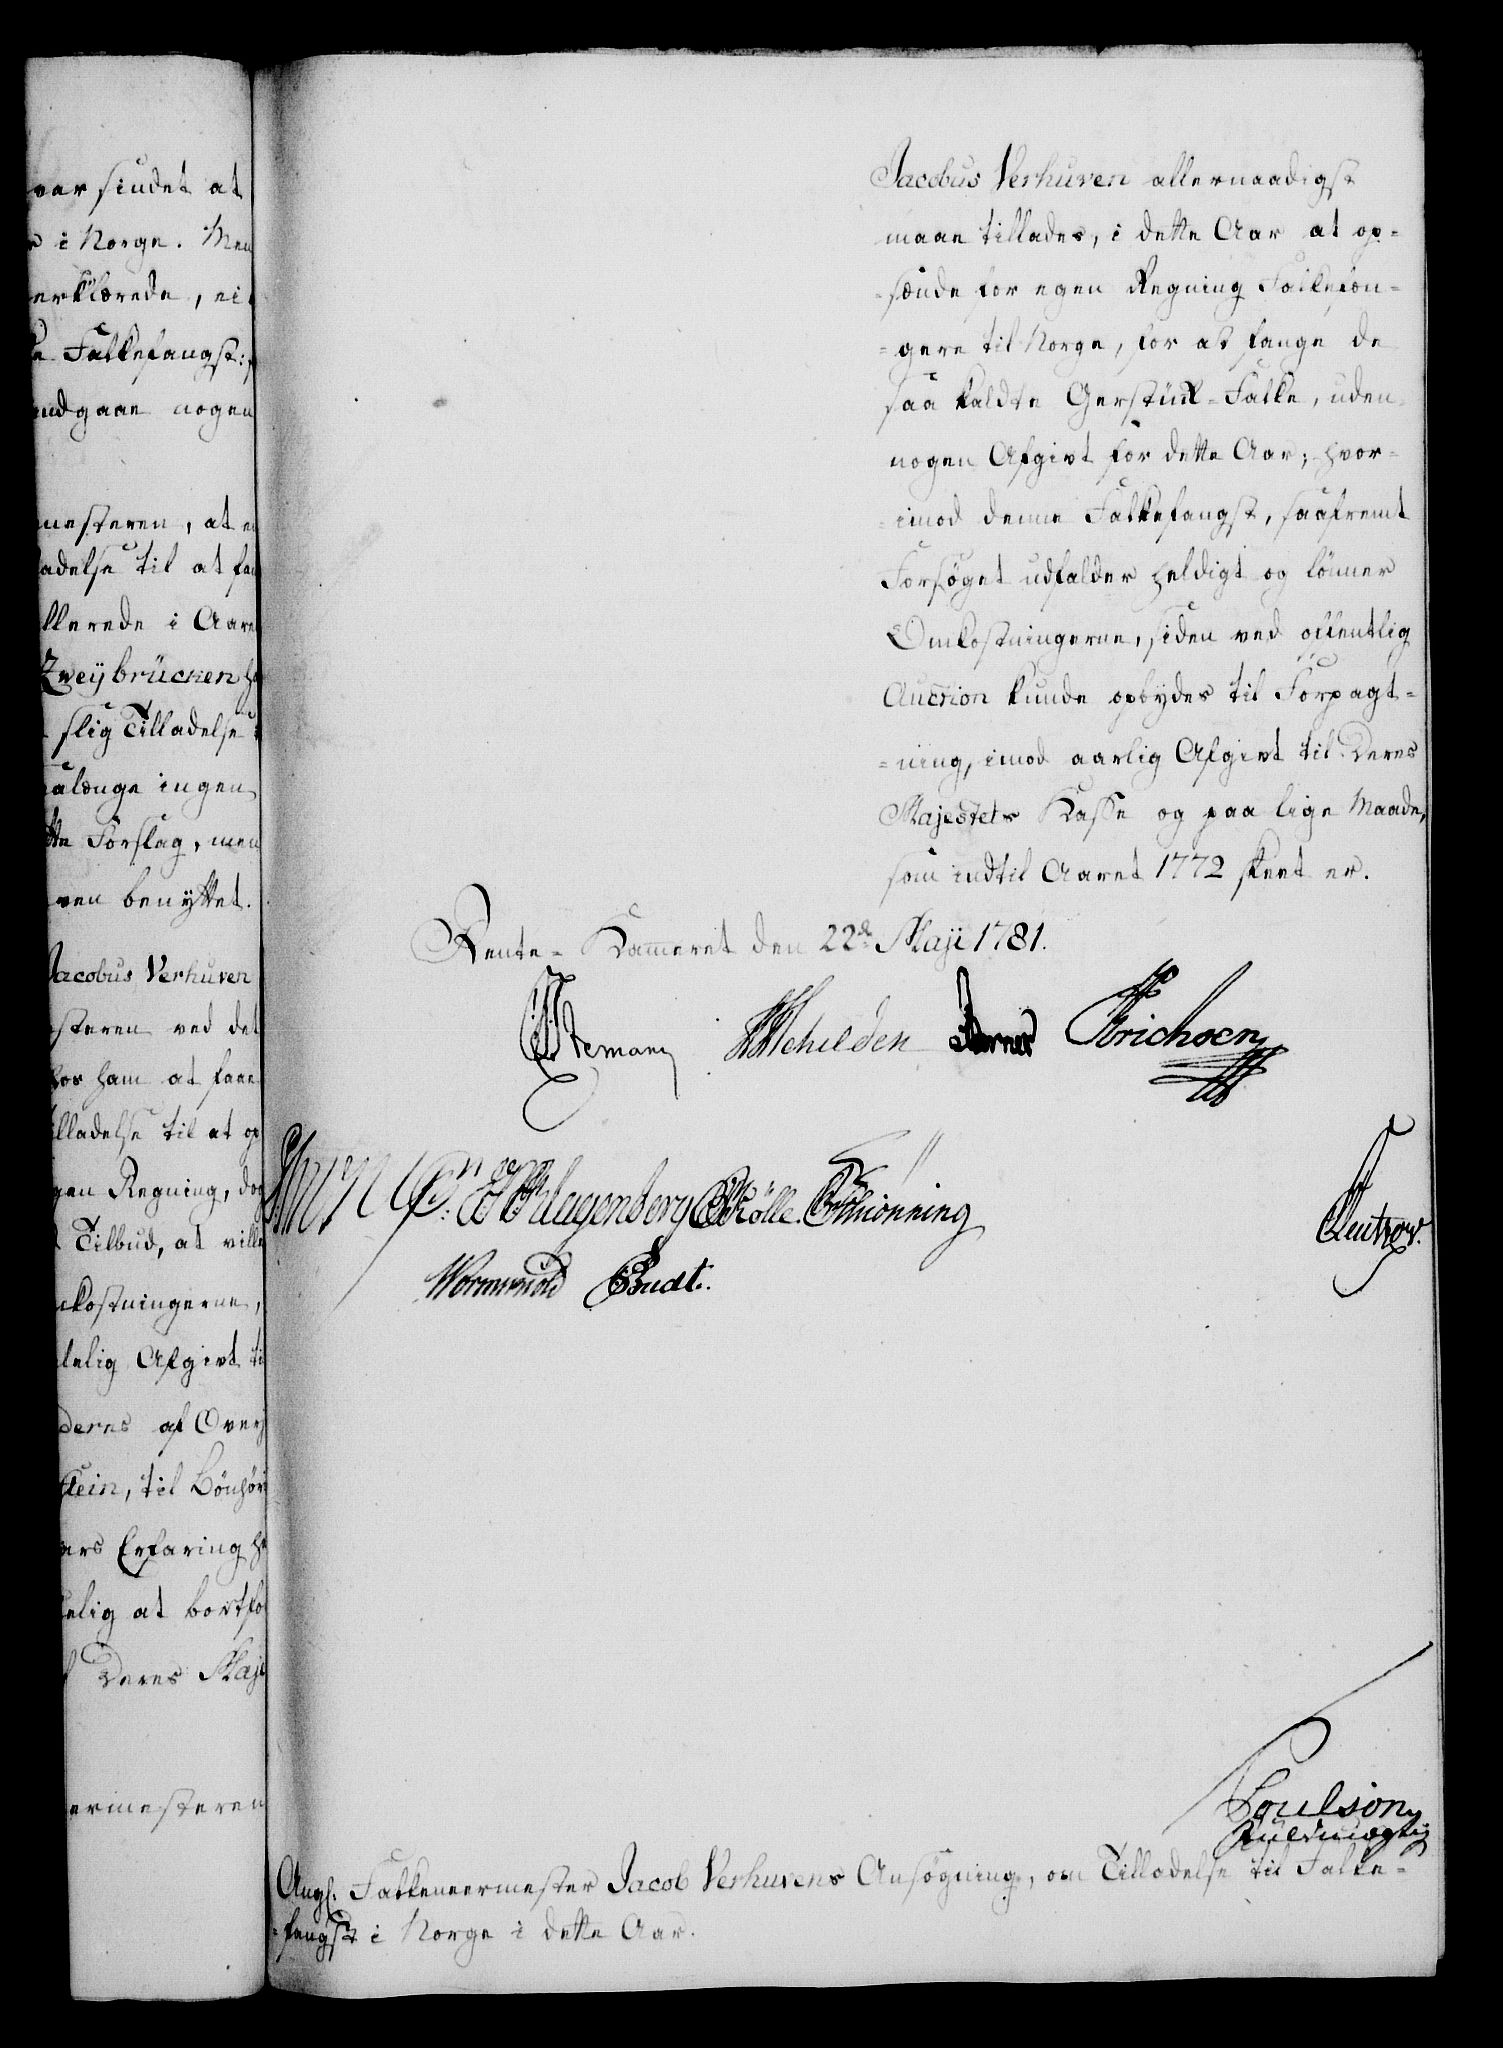 var sindet at
i Norge. Men
erklærede, ei
Falkefangst:
indgaae nogen
mesteren, at en
ladelse til at
llerede i Aaret
Zweybrücken
slig Tilladelse
saalænge ingen
Forslag, men
ven benyttet.
Jacobus Verhuven
steren ved det
hos ham at faae
illadelse til at op
gen Regning, dog
Tilbud, at ville
ekostningerne,
delig Afgivt til
deres af Over
stein, til Bönhör
ers Erfaring
elig at bortfo
Deres Maje
ermesteren
Jacobus Verhuven allernaadigst
maae tillades, i dette Aar at op-
-sænde for egen Regning Falkefæn-
-gere til Norge, for at fange de
saa kaldte Gerstük-Falke, uden
nogen Afgivt for dette Aar; hvor-
-imod denne Falkefangst, saafremt
Forsøget udfalder heldigt og lönner
Omkostningerne, siden ved offentlig
Auction kunde opbydes til Forpagt-
-ning, imod aarlig Afgivt til Deres
Majestets Kasse og paa lige Maade,
som indtil Aaret 1772 skeet er.
Rente-Kammeret den 22de Maji 1781.
Stemann Schilden Erichsen
Klagenberg Rölle. Schiönning
Wormskiold Budt.
Leutzow.
Poulson
Fuldmægtig
Angl. Falkeneermester Jacob Verhuvens Ansøgning, om Tilladelse til Falke-
-fangst i Norge i dette Aar.